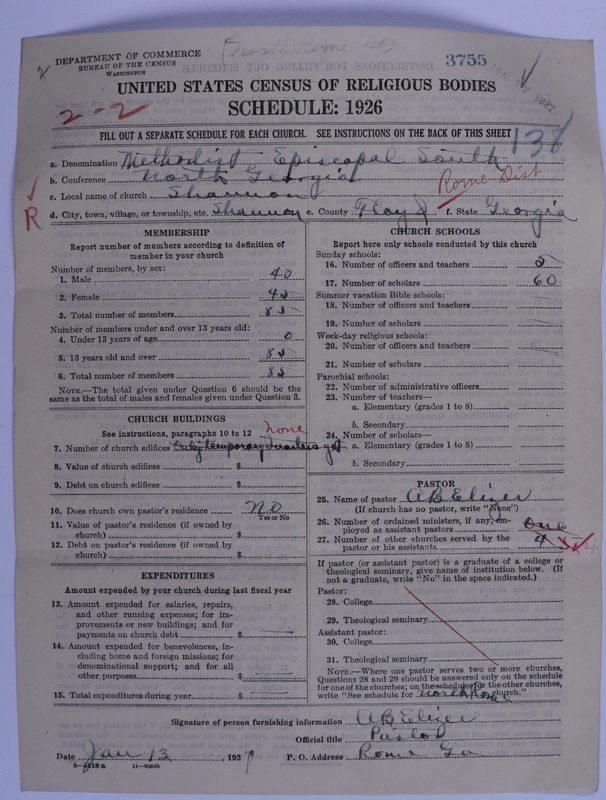 (North Rome Ch)
2
DEPARTMENT OF COMMERCE
BUREAU OF THE CENSUS
WASHINGTON
3755
UNITED STATES CENSUS OF RELIGIOUS BODIES
SCHEDULE: 1926
2-2
FILL OUT A SEPARATE SCHEDULE FOR EACH CHURCH. SEE INSTRUCTIONS ON THE BACK OF THIS SHEET
138
a. Denomination Methodist Episcopal South
b. Conference North Georgia
Rome Dist
c. Local name of church Shannon
R
d. City, town, village, or township, etc. Shannon e. County Floyd f. State Georgia
MEMBERSHIP
Report number of members according to definition of
member in your church
Number of members, by sex:
1. Male 40
2. Female 45
3. Total number of members 85
Number of members under and over 13 years old:
4. Under 13 years of age 0
5. 13 years old and over 85
6. Total number of members 85
NOTE.—The total given under Question 6 should be the
same as the total of males and females given under Question 3.
CHURCH BUILDINGS
See instructions, paragraphs 10 to 12
none
7. Number of church edifices Only temporary quarters yet
8. Value of church edifices $
9. Debt on church edifices $
10. Does church own pastor's residence No
Yes or No
11. Value of pastor's residence (if owned by
church) $
12. Debt on pastor's residence (if owned by
church) $
EXPENDITURES
Amount expended by your church during last fiscal year
13. Amount expended for salaries, repairs,
and other running expenses; for im-
provements or new buildings; and for
payments on church debt $
14. Amount expended for benevolences, in-
cluding home and foreign missions; for
denominational support; and for all
other purposes $
15. Total expenditures during year $
CHURCH SCHOOLS
Report here only schools conducted by this church
Sunday schools:
16. Number of officers and teachers 5
17. Number of scholars 60
Summer vacation Bible schools:
18. Number of officers and teachers
19. Number of scholars
Week-day religious schools:
20. Number of officers and teachers
21. Number of scholars
Parochial schools:
22. Number of administrative officers
23. Number of teachers—
a. Elementary (grades 1 to 8)
b. Secondary
24. Number of scholars—
a. Elementary (grades 1 to 8)
b. Secondary
PASTOR
25. Name of pastor A B Elizer
(If church has no pastor, write "None")
26. Number of ordained ministers, if any, em-
ployed as assistant pastors One
27. Number of other churches served by the
pastor or his assistants 4
If pastor (or assistant pastor) is a graduate of a college or
theological seminary, give name of institution below. (If
not a graduate, write "No" in the space indicated.)
Pastor:
28. College
29. Theological seminary
Assistant pastor:
30. College
31. Theological seminary
NOTE.—Where one pastor serves two or more churches,
Questions 28 and 29 should be answered only on the schedule
for one of the churches; on the schedules for the other churches,
write "See schedule for North Rome church."
Signature of person furnishing information A B Elizer
Official title Pastor
Date Jan 13, 1927 P. O. Address Rome Ga
8—5518a 11—9554b